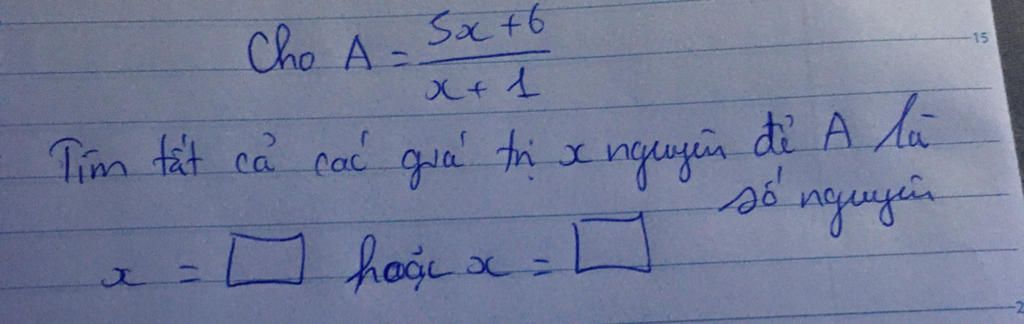 Cho A = \frac{5x+6}{x+1}
Tìm tất cả các giá trị x nguyên để A là
số nguyên
x = □ hoặc x = □
15
2